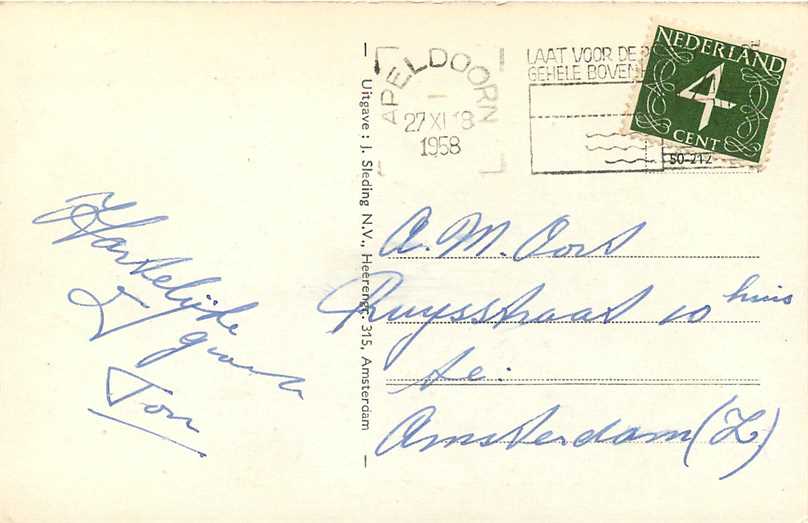 APELDOORN
27 XI 18
1958
LAAT VOOR DE
GEHELE BOVEN
NEDERLAND
4
CENT
50-212
Uitgave: J. Sleding N.V., Heerengr. 315, Amsterdam
Hartelijke
groeten
Ton
A. M. Oort
Ruysstraat 10 huis
te:
Amsterdam (Z)